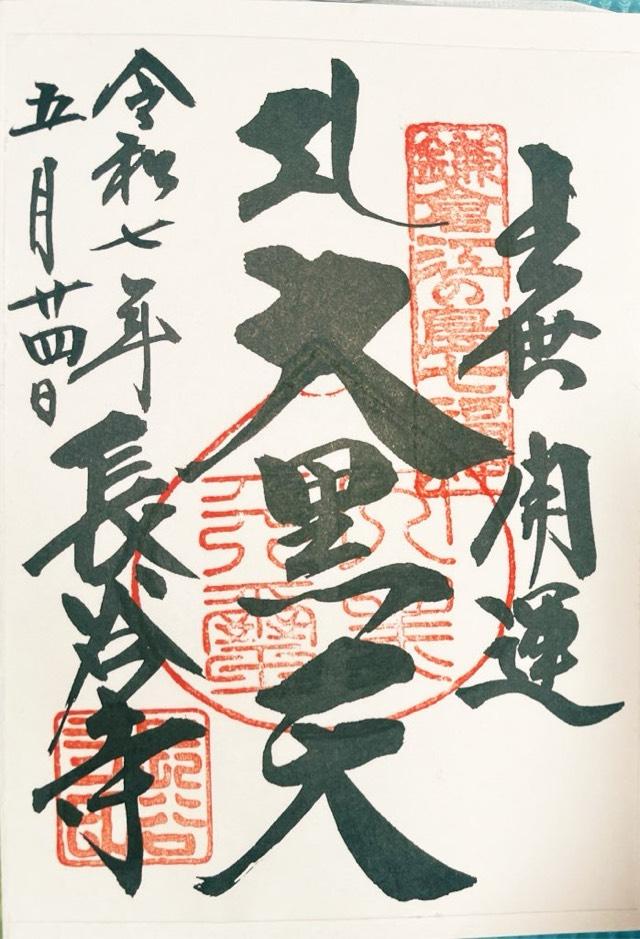 鎌倉江の島七福神
出世開運
大黒天
令和七年
五月廿四日
長谷寺